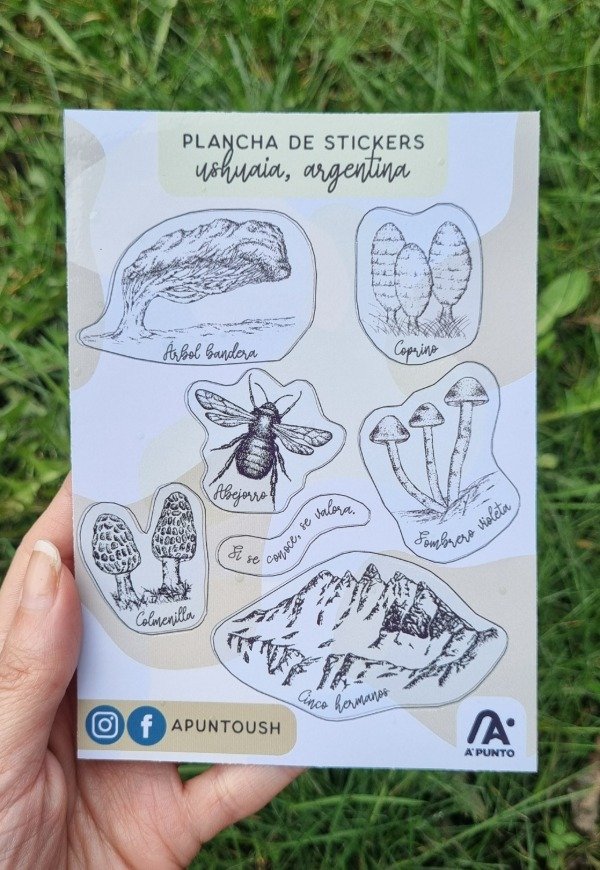 PLANCHA DE STICKERS
ushuaia, argentina
Árbol bandera
Coprino
Abejorro
Sombrero violeta
Si se conoce, se valora.
Colmenilla
Cinco hermanos
APUNTOUSH
A PUNTO